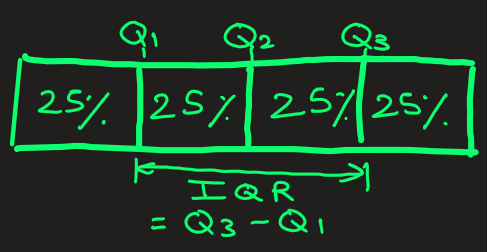 Q1 Q2 Q3
25% 25% 25% 25%
IQR
= Q3 - Q1